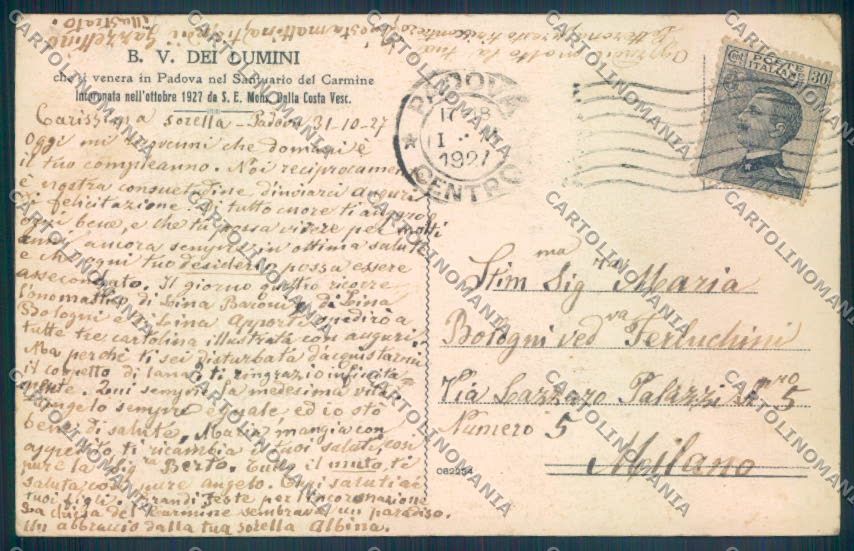 B. V. DEI LUMINI
che si venera in Padova nel Santuario del Carmine
Incoronata nell'ottobre 1927 da S. E. Mons. Dalla Costa Vesc.
Carissima sorella - Padova 31-10-27
Oggi mi sovvenni che domani è
il tuo compleanno. Noi reciprocamente
è nostra consuetudine d'inviarci auguri
di felicitazione. Di tutto cuore ti auguro
ogni bene, e che tu possa vivere per molti
anni ancora sempre in ottima salute
e che ogni tuo desiderio possa essere
assecondato. Il giorno quattro ricorre
l'onomastico di Lina Baroni, di Lina
Bologni e di Lina Apporti spedirò a
tutte tre cartolina illustrata con auguri.
Ma perchè ti sei disturbata d'acquistarmi
il corpetto di lana, ti ringrazio infinita=
mente. Qui sempre la medesima vita
Angelo sempre eguale ed io sto
bene di salute, Maria mangia con
appetito, ti ricambia i tuoi saluti, così
pure la Sig.ra Berto. Tullo il muto, ti
saluta così pure Angelo. Tanti saluti ai
tuoi figli. Grandi feste per l'Incoronazione
La chiesa del Carmine sembrava un paradiso.
Un abbraccio dalla tua sorella Albina.
illustrato
PADOVA
17-18
I
1927
CENTRO
POSTE
ITALIANE
Cent
30
Stim.ma Sig.ra Maria
Bologni ved.va Ferluchini
Via Lazzaro Palazzi N.ro 5
Numero 5
Milano
062254
CARTOLINOMANIA